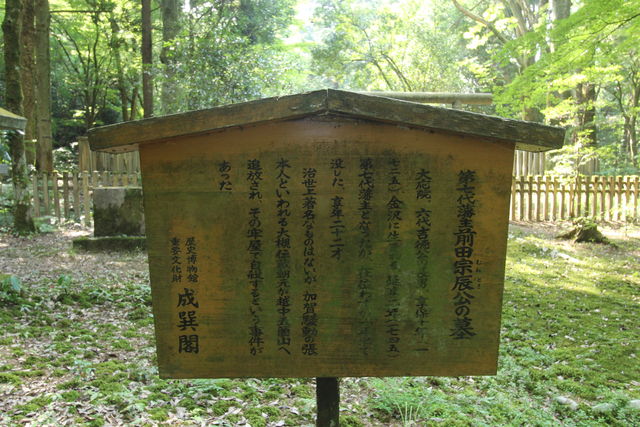 第七代藩主前田宗辰公の墓
むね とき
大応院 六代吉徳公の長男、享保十年(一
七二五)金沢に生れる。延享二年(一七四五)
第七代藩主となったが、在位わずか一年で
没した。享年二十二才。
治世に著名なものはないが、加賀騒動の張
本人といわれる大槻伝蔵朝元が越中五箇山へ
追放され、その牢屋で自殺するという事件が
あった。
歴史博物館
重要文化財
成巽閣